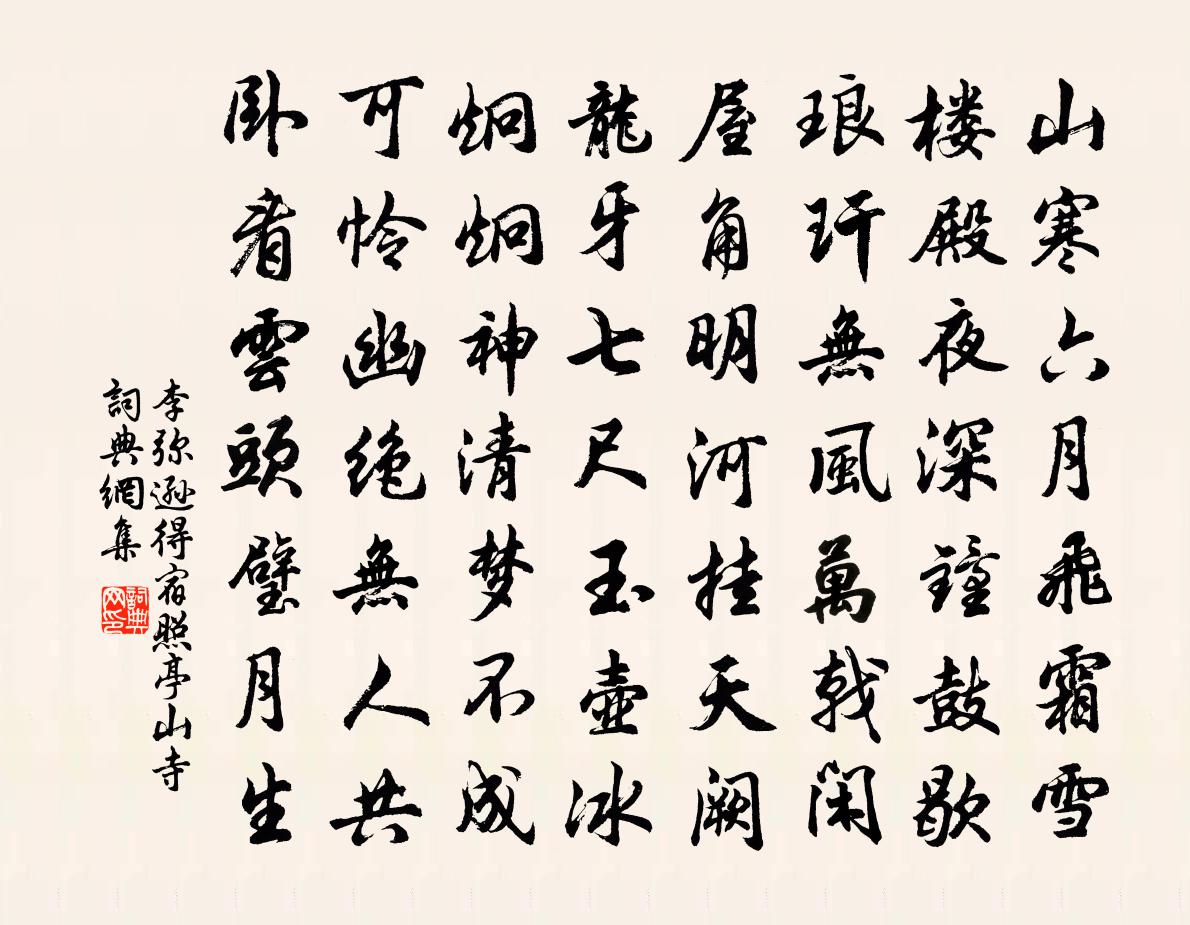 山寒六月飛霜雪
楼殿夜深鐘鼓歇
琅玕無風萬戟閑
屋角明河挂天闕
龍牙七尺玉壺冰
炯炯神清梦不成
可怜幽绝無人共
卧看雲頭璧月生
李弥遜得宿照亭山寺
詞典網集
詞典网印